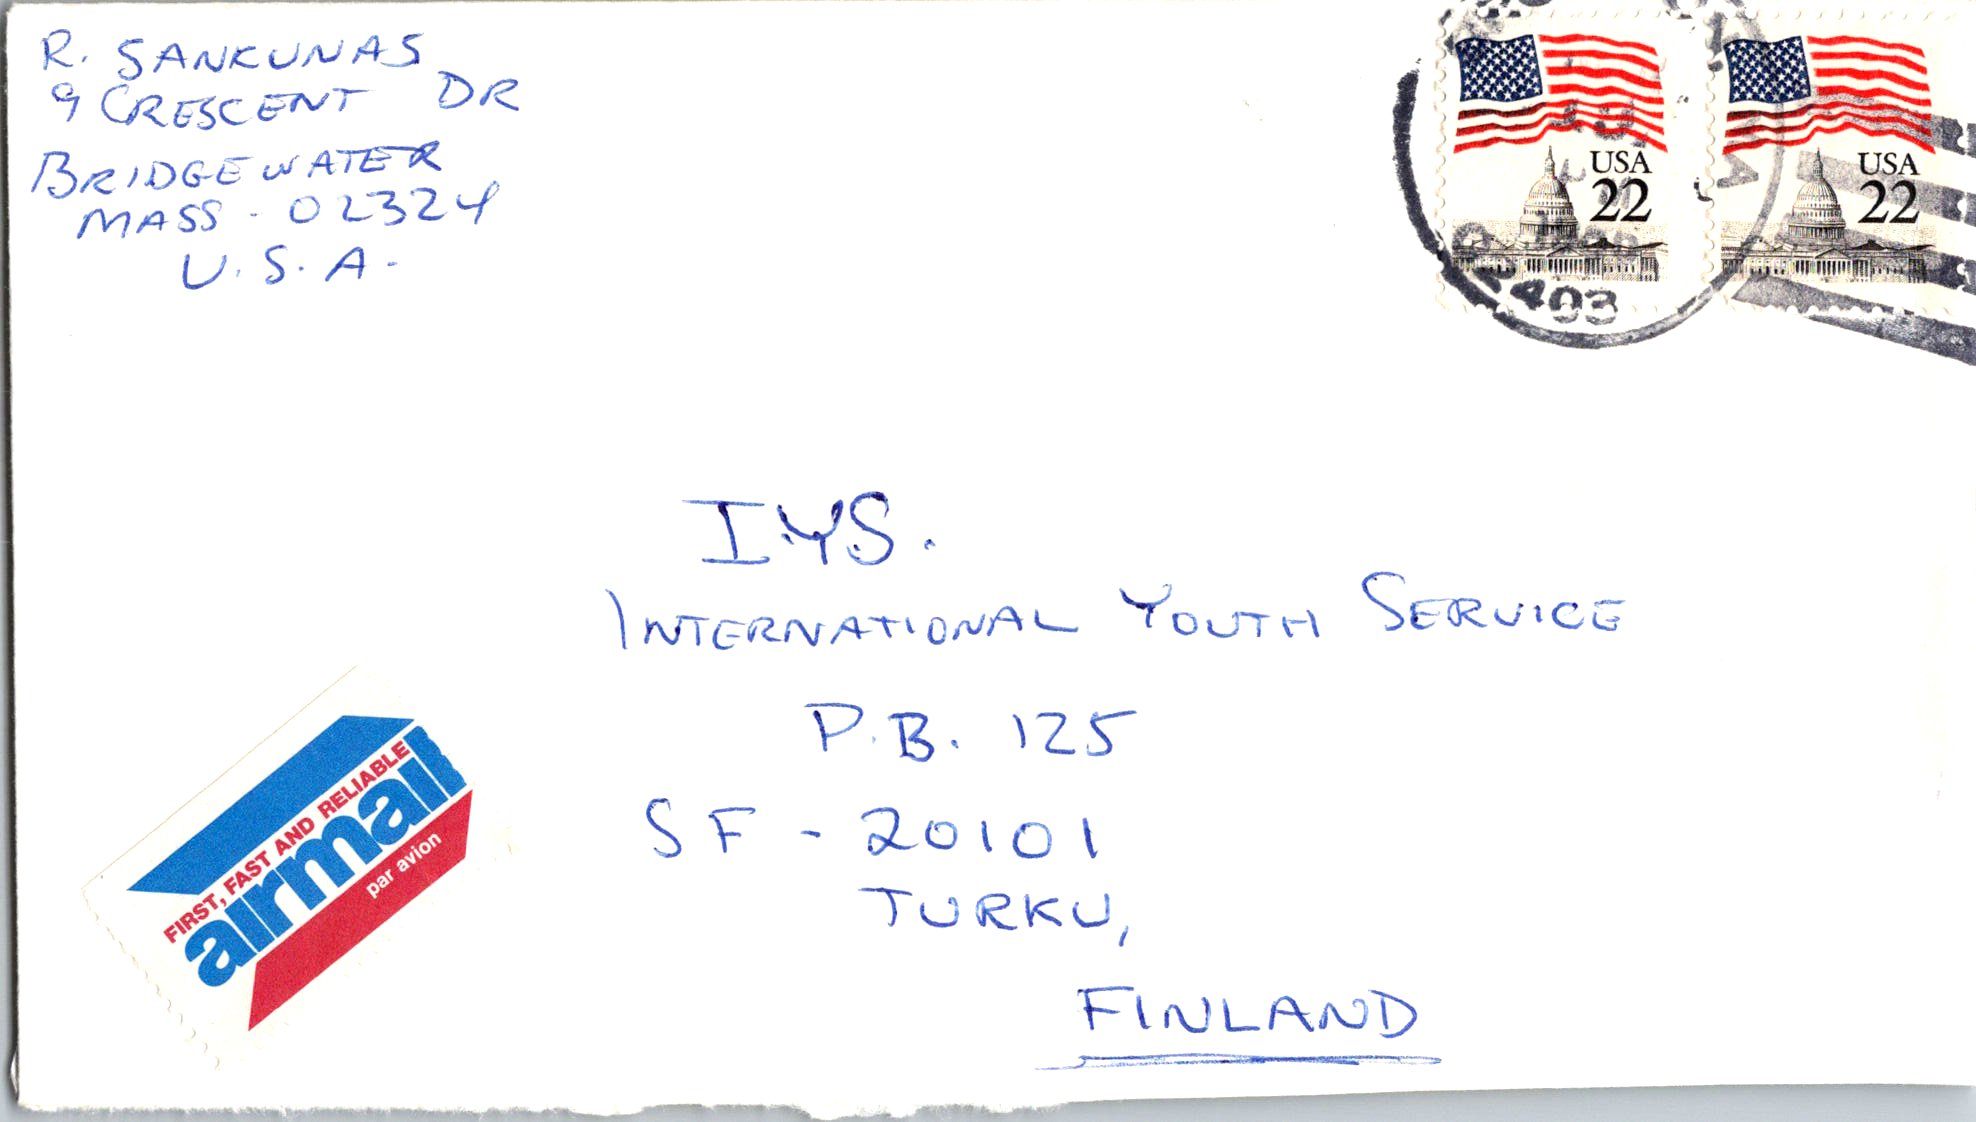 R. SANKUNAS
9 CRESCENT DR
BRIDGEWATER
MASS - 02324
U.S.A.
USA
22
USA
22
403
I.Y.S.
INTERNATIONAL YOUTH SERVICE
P.B. 125
SF - 20101
TURKU,
FINLAND
FIRST, FAST AND RELIABLE
airmail
par avion